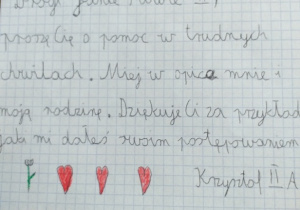 Drogi Janie Pawle II,
proszę Cię o pomoc w trudnych
chwilach. Miej w opiece mnie i
moją rodzinę. Dziękuję Ci za przykład
jaki mi dałeś swoim postępowaniem
Krzysztof II A